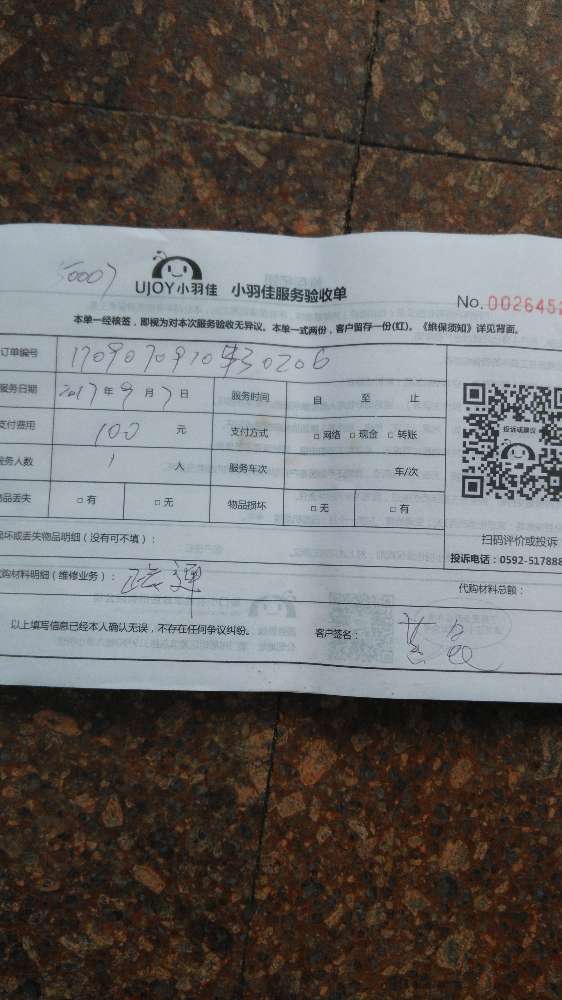 50007
UJOY小羽佳 小羽佳服务验收单
No.0026452
本单一经核签，即视为对本次服务验收无异议。本单一式两份，客户留存一份(红)。《维保须知》详见背面。
订单编号
服务日期 2017年9月7日 服务时间 自 至 止
支付费用 100 元 支付方式 □网络 □现金 □转账
服务人数 1 人 服务车次 年/次
物品丢失 □有 □无 物品损坏 □无 □有
投诉或建议
扫码评价或投诉
投诉电话：0592-517888
损坏或丢失物品明细（没有可不填）：
代购材料明细（维修业务）： 代购材料总额：
以上填写信息已经本人确认无误，不存在任何争议纠纷。 客户签名：